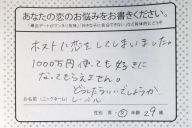 あなたの恋のお悩みをお書きください。
ホストに恋をしてしまいました。
1000万円使っても好きに
なってもらえません。
どうしたらいいでしょうか
お名前(ニックネーム) し・バル
男・女 年齢 29 歳